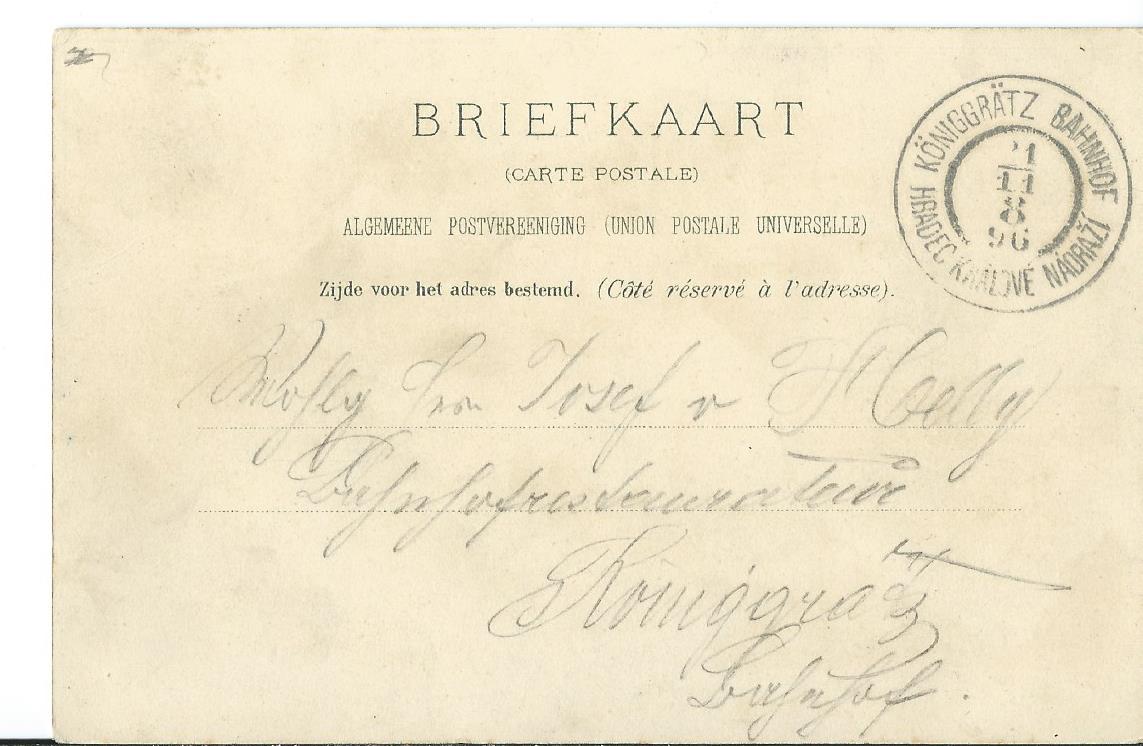 BRIEFKAART
(CARTE POSTALE)
ALGEMEENE POSTVEREENIGING (UNION POSTALE UNIVERSELLE)
Zijde voor het adres bestemd. (Côté réservé à l'adresse).
KÖNIGGRÄTZ BAHNHOF
HRADEC KRÁLOVÉ NÁDRAŽÍ
21
11
8
96
Josef v
Bahnhofrestaurateur
Königgrätz
Bahnhof.